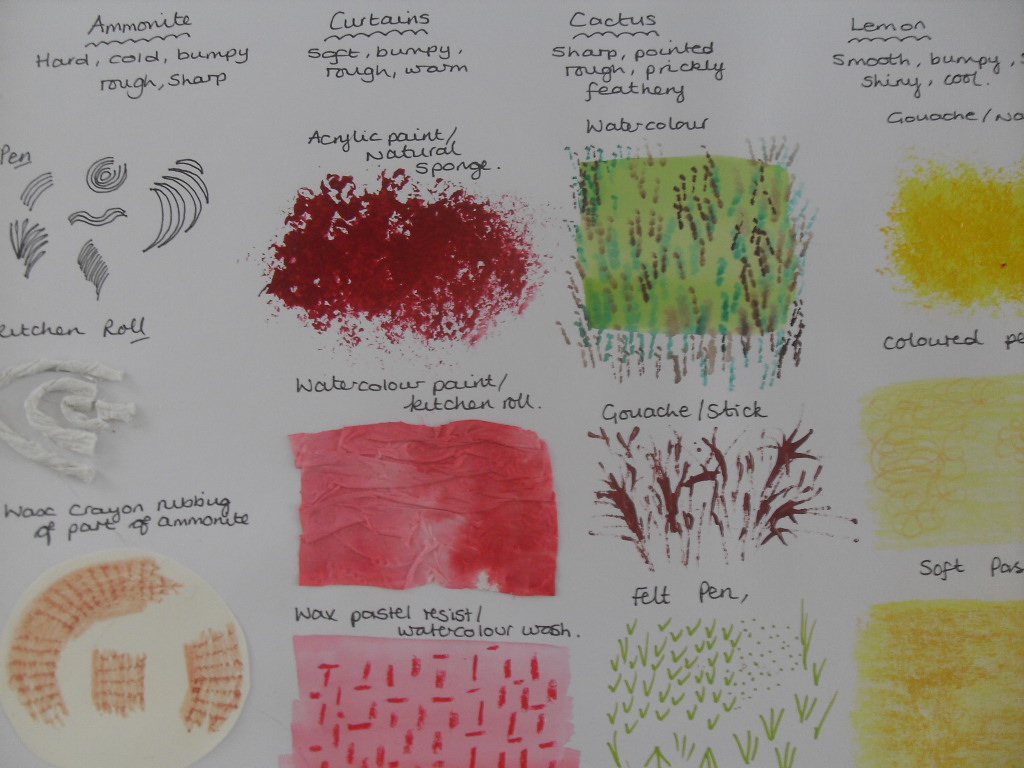 Ammonite
Hard, cold, bumpy
rough, sharp
Pen
Kitchen Roll
Wax crayon rubbing
of part of ammonite
Curtains
Soft, bumpy,
rough, warm
Acrylic paint/
Natural
sponge.
Watercolour paint/
kitchen roll.
Wax pastel resist/
watercolour wash.
Cactus
Sharp, pointed
rough, prickly
feathery
Watercolour
Gouache/Stick
Felt Pen,
Lemon
Smooth, bumpy,
shiny, cool.
Gouache/
Coloured
Soft